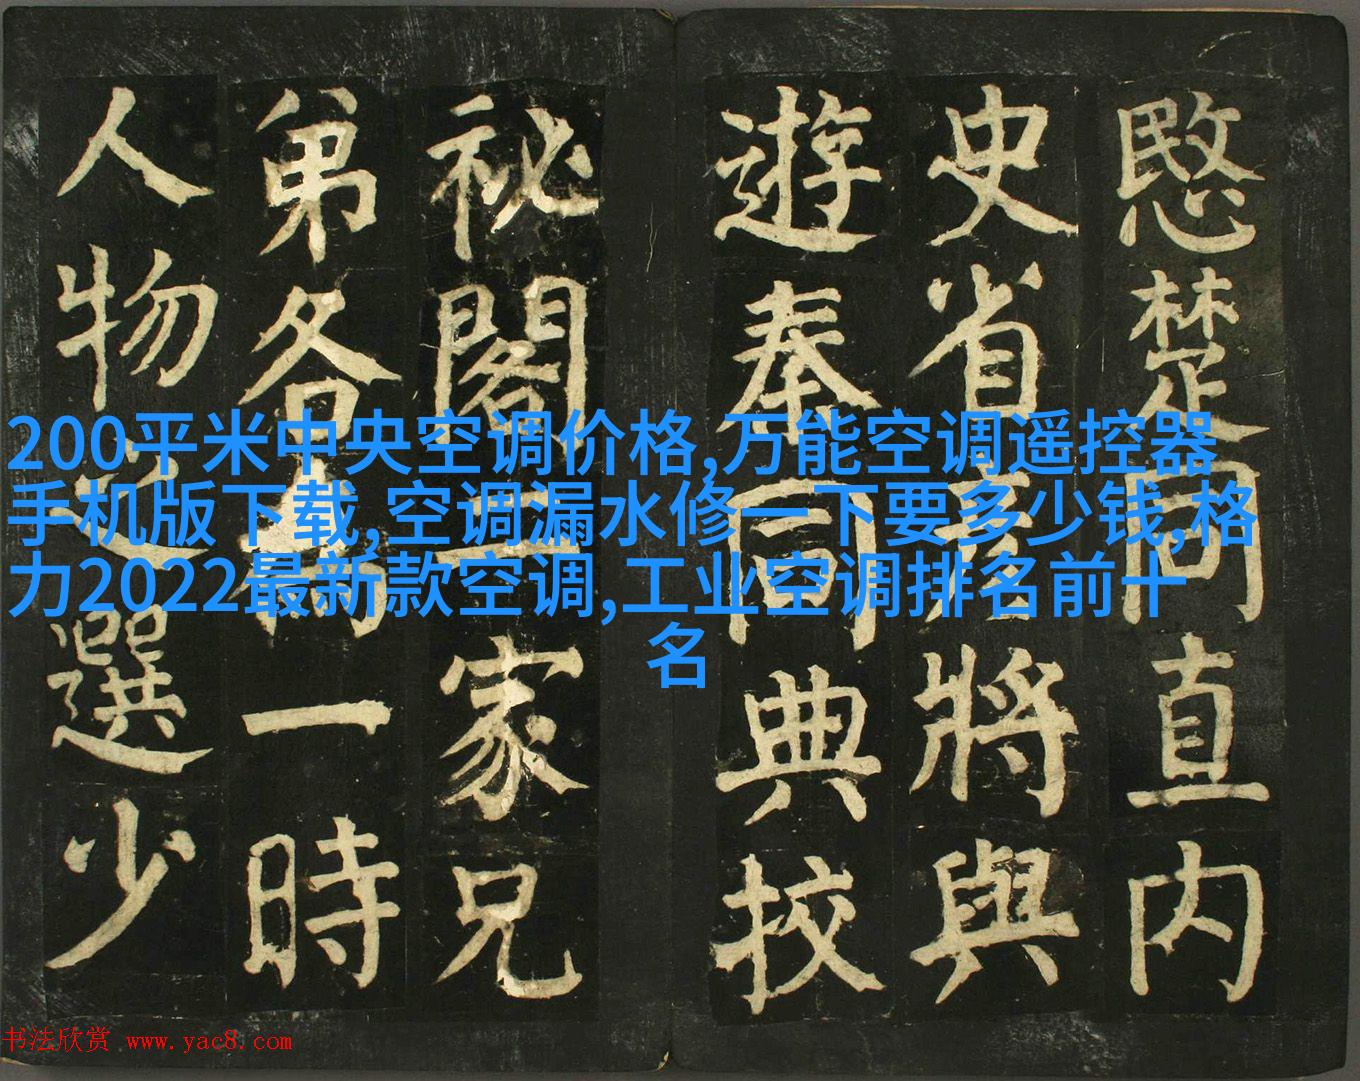 愍楚同直内
史省彦將與
遊秦同典校
祕閣二家兄
弟各為一時
人物之選少
200平米中央空调价格,万能空调遥控器
手机版下载,空调漏水修一下要多少钱,格
力2022最新款空调,工业空调排名前十
名
书法欣赏 www.yac8.com